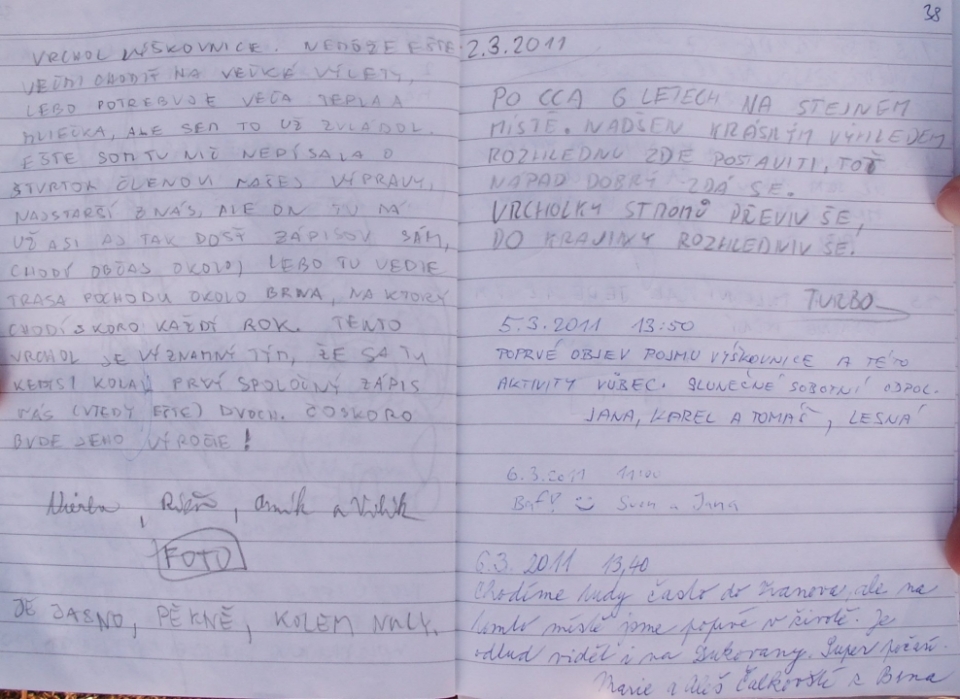 VRCHOL VÝŠKOVNICE. NEMÔŽE EŠTE
VEĽMI CHODIŤ NA VEĽKÉ VÝLETY,
LEBO POTREBUJE VEĽA TEPLA A
MLIEČKA, ALE SEM TO UŽ ZVLÁDOL.
EŠTE SOM TU NIČ NEPÍSALA O
ŠTVRTOM ČLENOVI NAŠEJ VÝPRAVY,
NAJSTARŠÍ Z NÁS, ALE ON TU MÁ
UŽ ASI AJ TAK DOSŤ ZÁPISOV SÁM,
CHODÍ OBČAS OKOLO, LEBO TU VEDIE
TRASA POCHODU OKOLO BRNA, NA KTORÝ
CHODÍ SKORO KAŽDÝ ROK. TENTO
VRCHOL JE VÝZNAMNÝ TÝM, ŽE SA TU
KEDYSI KONAL PRVÝ SPOLOČNÝ ZÁPIS
NÁS (VTEDY EŠTE) DVOCH. ČOSKORO
BUDE JEHO VÝROČIE!
a Vilík
FOTO
JE JASNO, PĚKNĚ, KOLEM NULY.
38
2.3.2011
PO CCA 6 LETECH NA STEJNÉM
MÍSTĚ. NADŠEN KRÁSNÝM VÝHLEDEM
ROZHLEDNU ZDE POSTAVITI, TOŤ
NÁPAD DOBRÝ ZDÁ SE.
VRCHOLKY STROMŮ PŘEVIV ŠE,
DO KRAJINY ROZHLEDNIV ŠE.
TURBO
5.3.2011 13:50
TOPRVÉ OBJEV POJMU VÝŠKOVNICE A TÉTO
AKTIVITY VŮBEC. SLUNEČNÉ SOBOTNÍ ODPOL.
JANA, KAREL A TOMÁŠ, LESNÁ
6.3.2011 11:00
Baf! Sven a Jana
6.3. 2011 13,40
Chodíme tudy často do Ivanova, ale na
tomto místě jsme poprvé v životě. Je
odtud vidět i na Dukovany. Super počasí.
Marie a Aleš z Brna